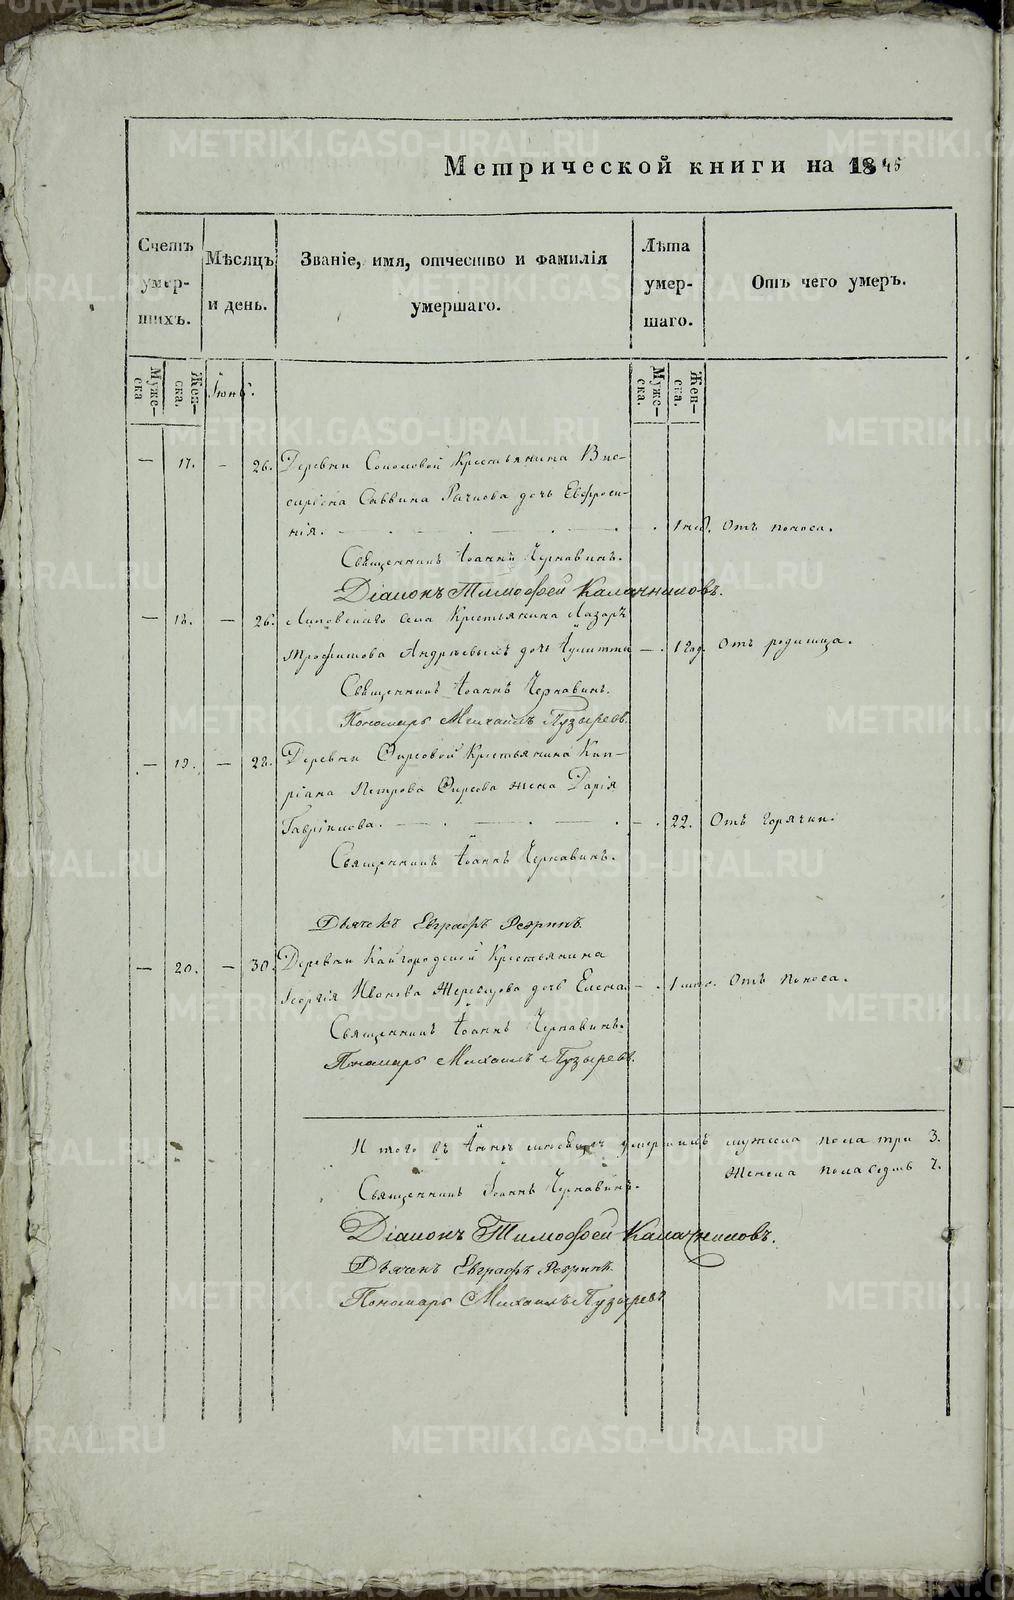 Метрической книги на 1845
Счетъ умершихъ.
Мѣсяцъ и день.
Званіе, имя, отчество и фамилія умершаго.
Лѣта умершаго.
Отъ чего умеръ.
Мужеска
Женска.
Іюнь.
Мужеска.
Женска.
— 17. — 26. Деревни Соколовой Крестьянина Вис-
саріона Саввина Рычкова дочь Евфроси-
нія. 1 нед. Отъ поноса.
Священникъ Іоаннъ Чернавинъ.
Діаконъ Тимофей Калачниковъ.
— 18. — 26. Липовскаго села Крестьянина Лазаря
Трофимова Андреевыхъ дочь Іулиттія — 1 год. Отъ родимца.
Священникъ Іоаннъ Чернавинъ.
Пономарь Михаилъ Пузыревъ.
— 19. — 28. Деревни Фирсовой Крестьянина Кип-
ріана Петрова Фирсова жена Дарія
Гавриилова. — 22. Отъ горячки.
Священникъ Іоаннъ Чернавинъ.
Дьячекъ Евграфъ Ребринъ.
— 20. — 30. Деревни Кайгородской Крестьянина
Георгія Иванова Жеребцова дочь Елена. — 1 мѣс. Отъ поноса.
Священникъ Іоаннъ Чернавинъ.
Пономарь Михаилъ Пузыревъ.
Итого въ Іюнѣ мѣсяцѣ умершихъ мужеска пола три 3.
Женска пола седмь 7.
Священникъ Іоаннъ Чернавинъ.
Діаконъ Тимофей Калачниковъ.
Дьячекъ Евграфъ Ребринъ.
Пономарь Михаилъ Пузыревъ
METRIKI.GASO-URAL.RU